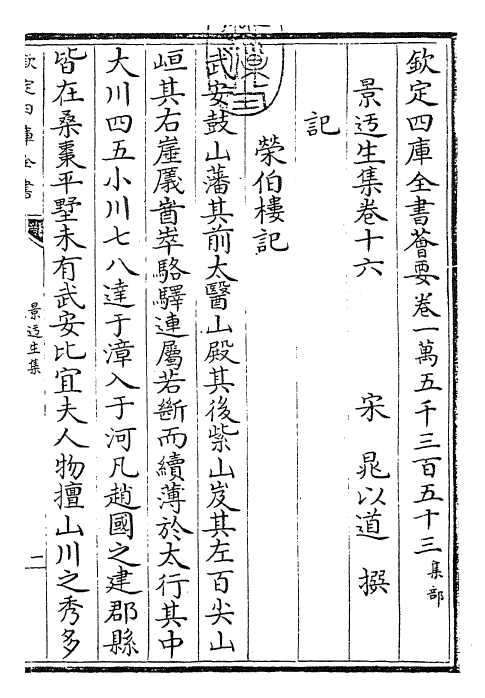 欽定四庫全書薈要卷一萬五千三百五十三集部
景迃生集卷十六 宋 晁以道 撰
記
榮伯樓記
武安鼓山藩其前太醫山殿其後紫山岌其左百尖山
峘其右崖㕒崷崒駱驛連屬若斷而續薄於太行其中
大川四五小川七八達于漳入于河凡趙國之建郡縣
皆在桑棗平墅未有武安比宜夫人物擅山川之秀多
欽定四庫全書
景迃生集